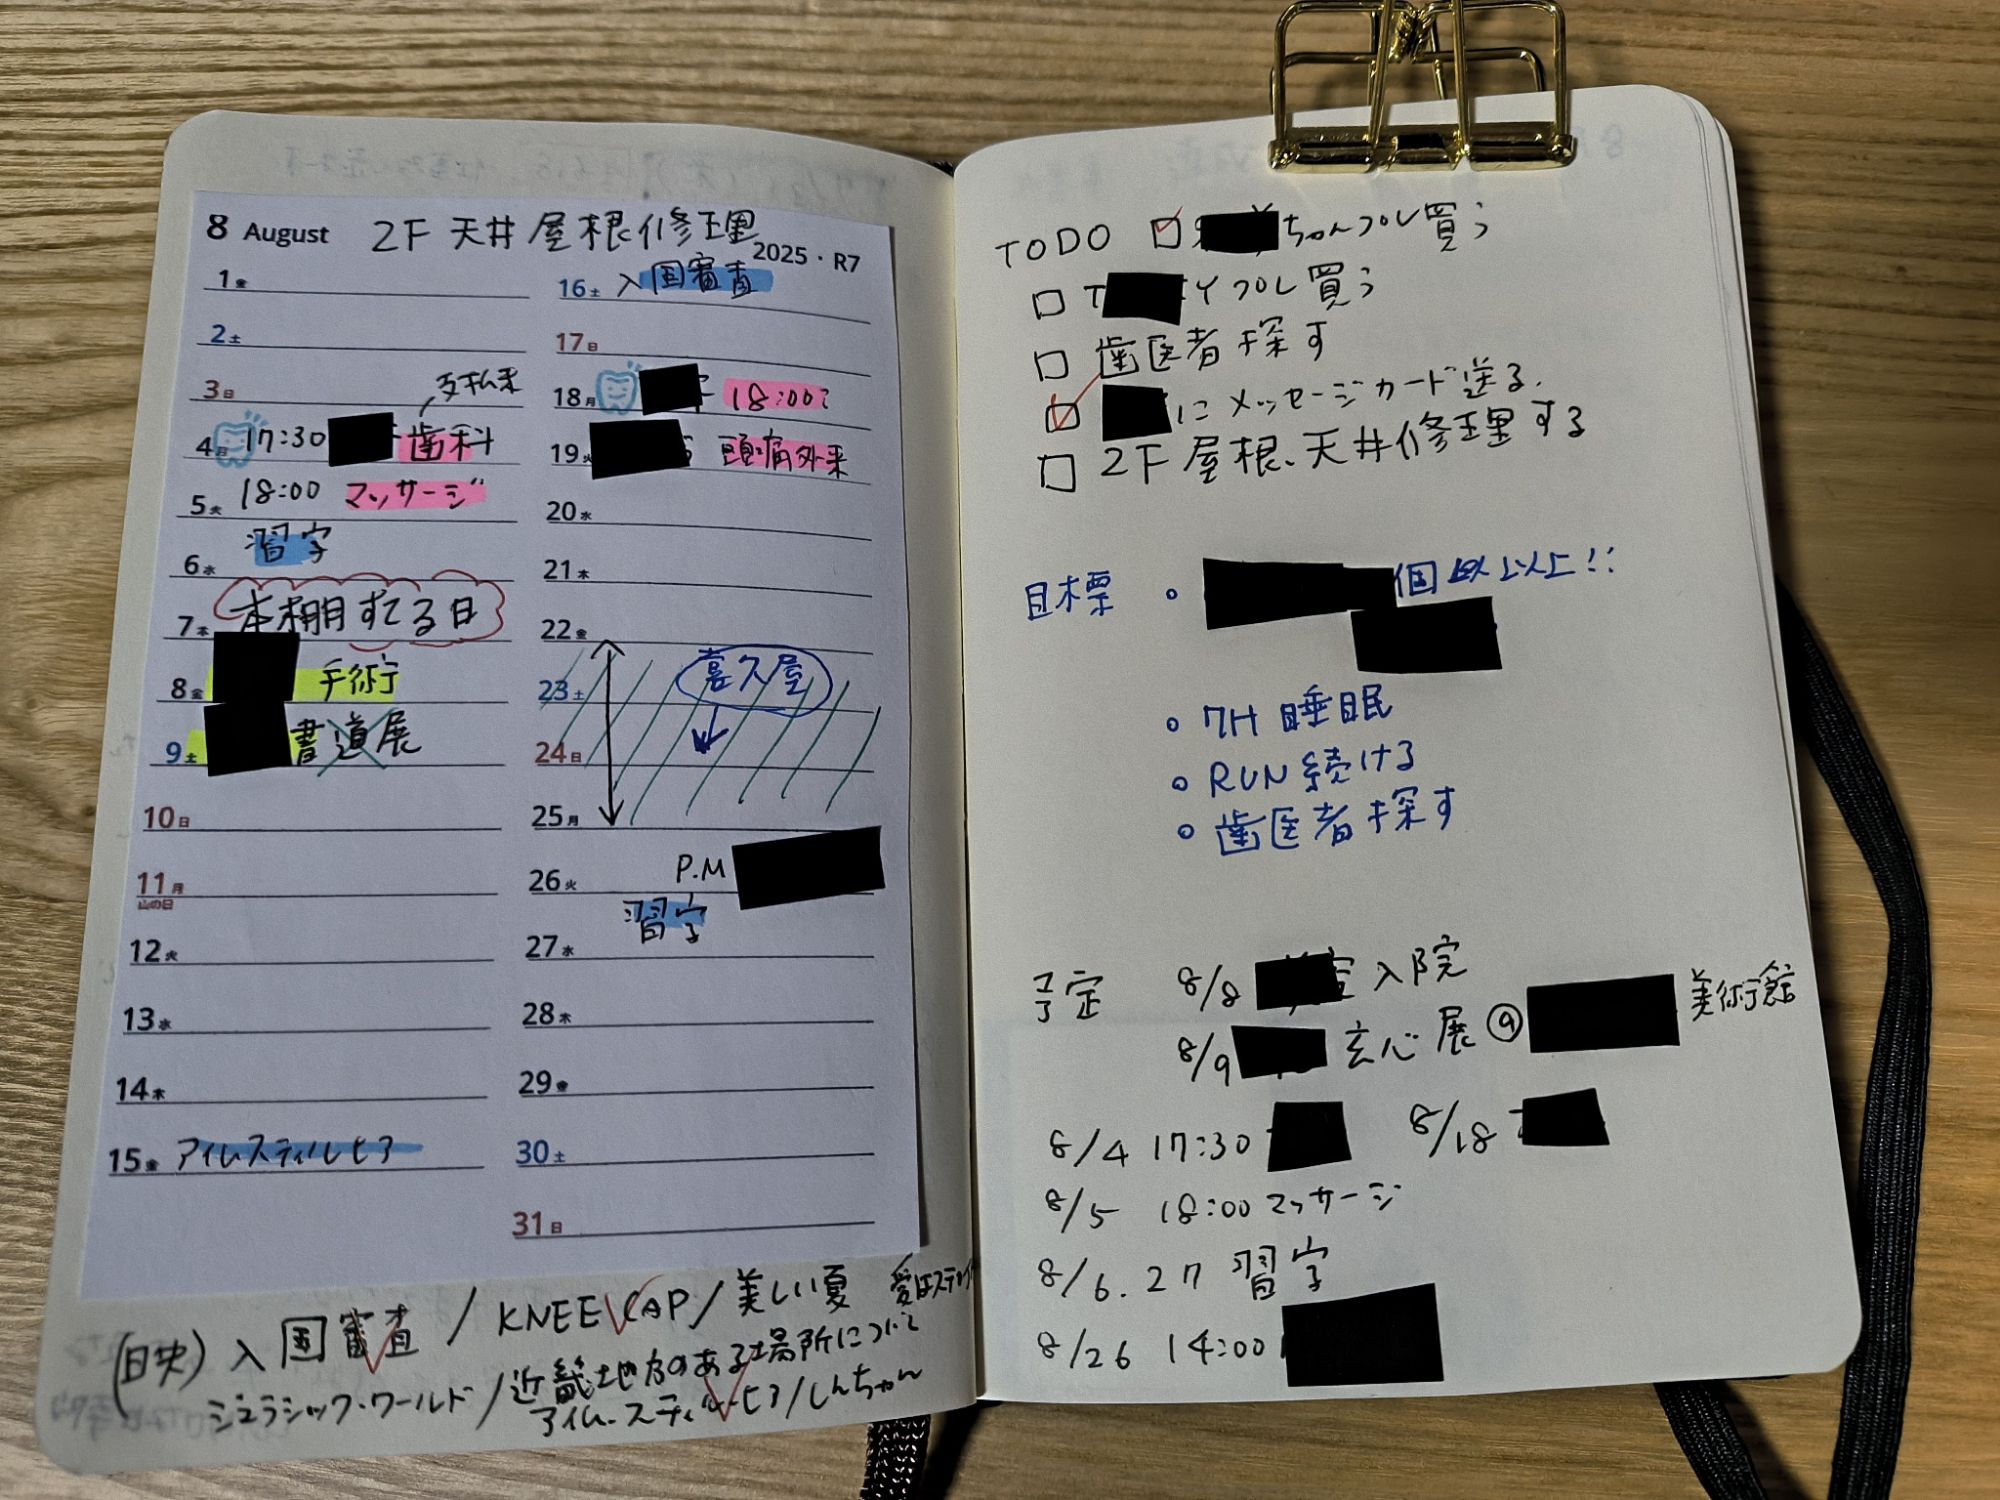 8 August 2F 天井 屋根修理
2025・R7
1金
2土
3日
支払未
4月 17:30 歯科
5火 18:00 マッサージ
習字
6水
7木 本棚すてる日
8金 手術
9土 書道展
10日
11月
山の日
12火
13水
14木
15金 アイムスティルヒア
16土 入国審査
17日
18月 18:00?
19火 頭痛外来
20水
21木
22金
23土 喜久屋
24日
25月
26火 P.M
習字
27水
28木
29金
30土
31日
(映) 入国審査 / KNEECAP / 美しい夏
ジュラシック・ワールド / 近畿地方のある場所について
アイム・スティルヒア / しんちゃん
TODO ちゃんプレ買う
Yプレ買う
歯医者探す
にメッセージカード送る.
2F屋根、天井修理する
目標 個以上!!
7H睡眠
RUN続ける
歯医者探す
予定 8/8 入院
8/9 玄心展@ 美術館
8/4 17:30 8/18
8/5 18:00 マッサージ
8/6.27 習字
8/26 14:00